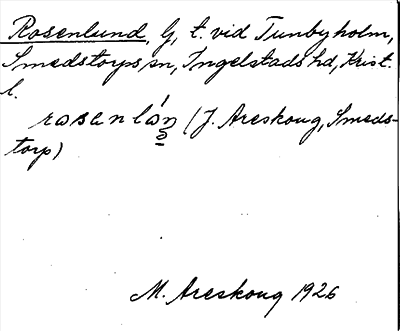 Rosenlund, G, t. vid Tunbyholm,
Smedstorps sn, Ingelstads hd, Krist.
l.
(J. Areskoug, Smeds-
torp)
M. Areskoug 1926